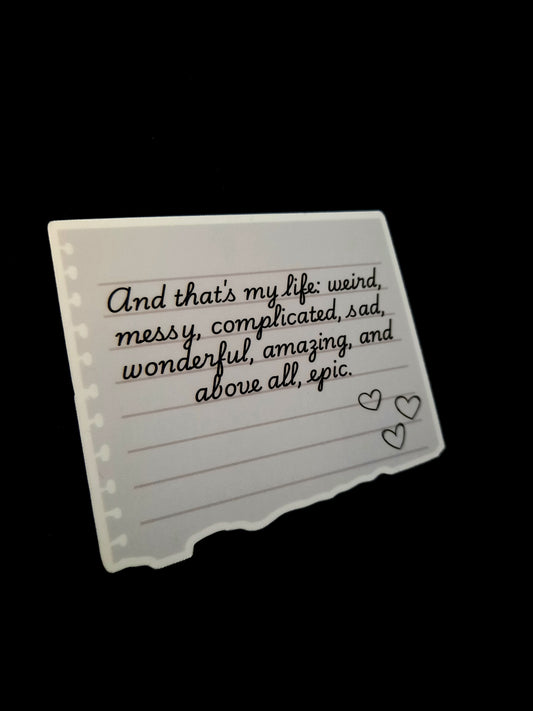 And that's my life: weird,
messy, complicated, sad,
wonderful, amazing, and
above all, epic.